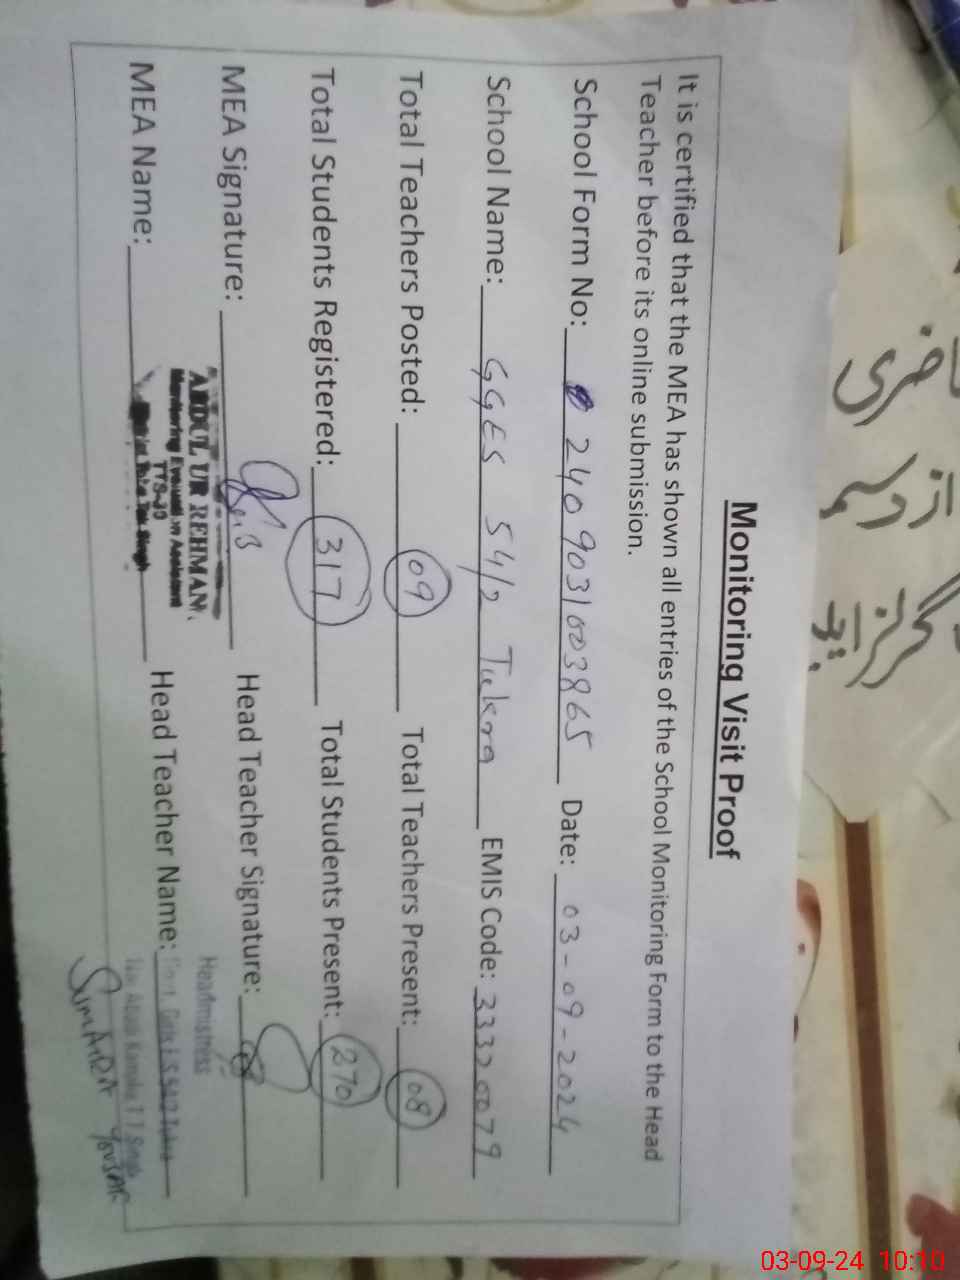 Monitoring Visit Proof
It is certified that the MEA has shown all entries of the School Monitoring Form to the Head
Teacher before its online submission.
School Form No: 2409031003865 Date: 03-09-2024
School Name: GGES 54/2 Tukra EMIS Code: 33320079
Total Teachers Posted: 09 Total Teachers Present: 08
Total Students Registered: 317 Total Students Present: 270
MEA Signature: Head Teacher Signature:
ABDUL UR REHMAN
Monitoring Evaluation Assistant
MEA Name: Head Teacher Name:
Headmistress
03-09-24 10:10